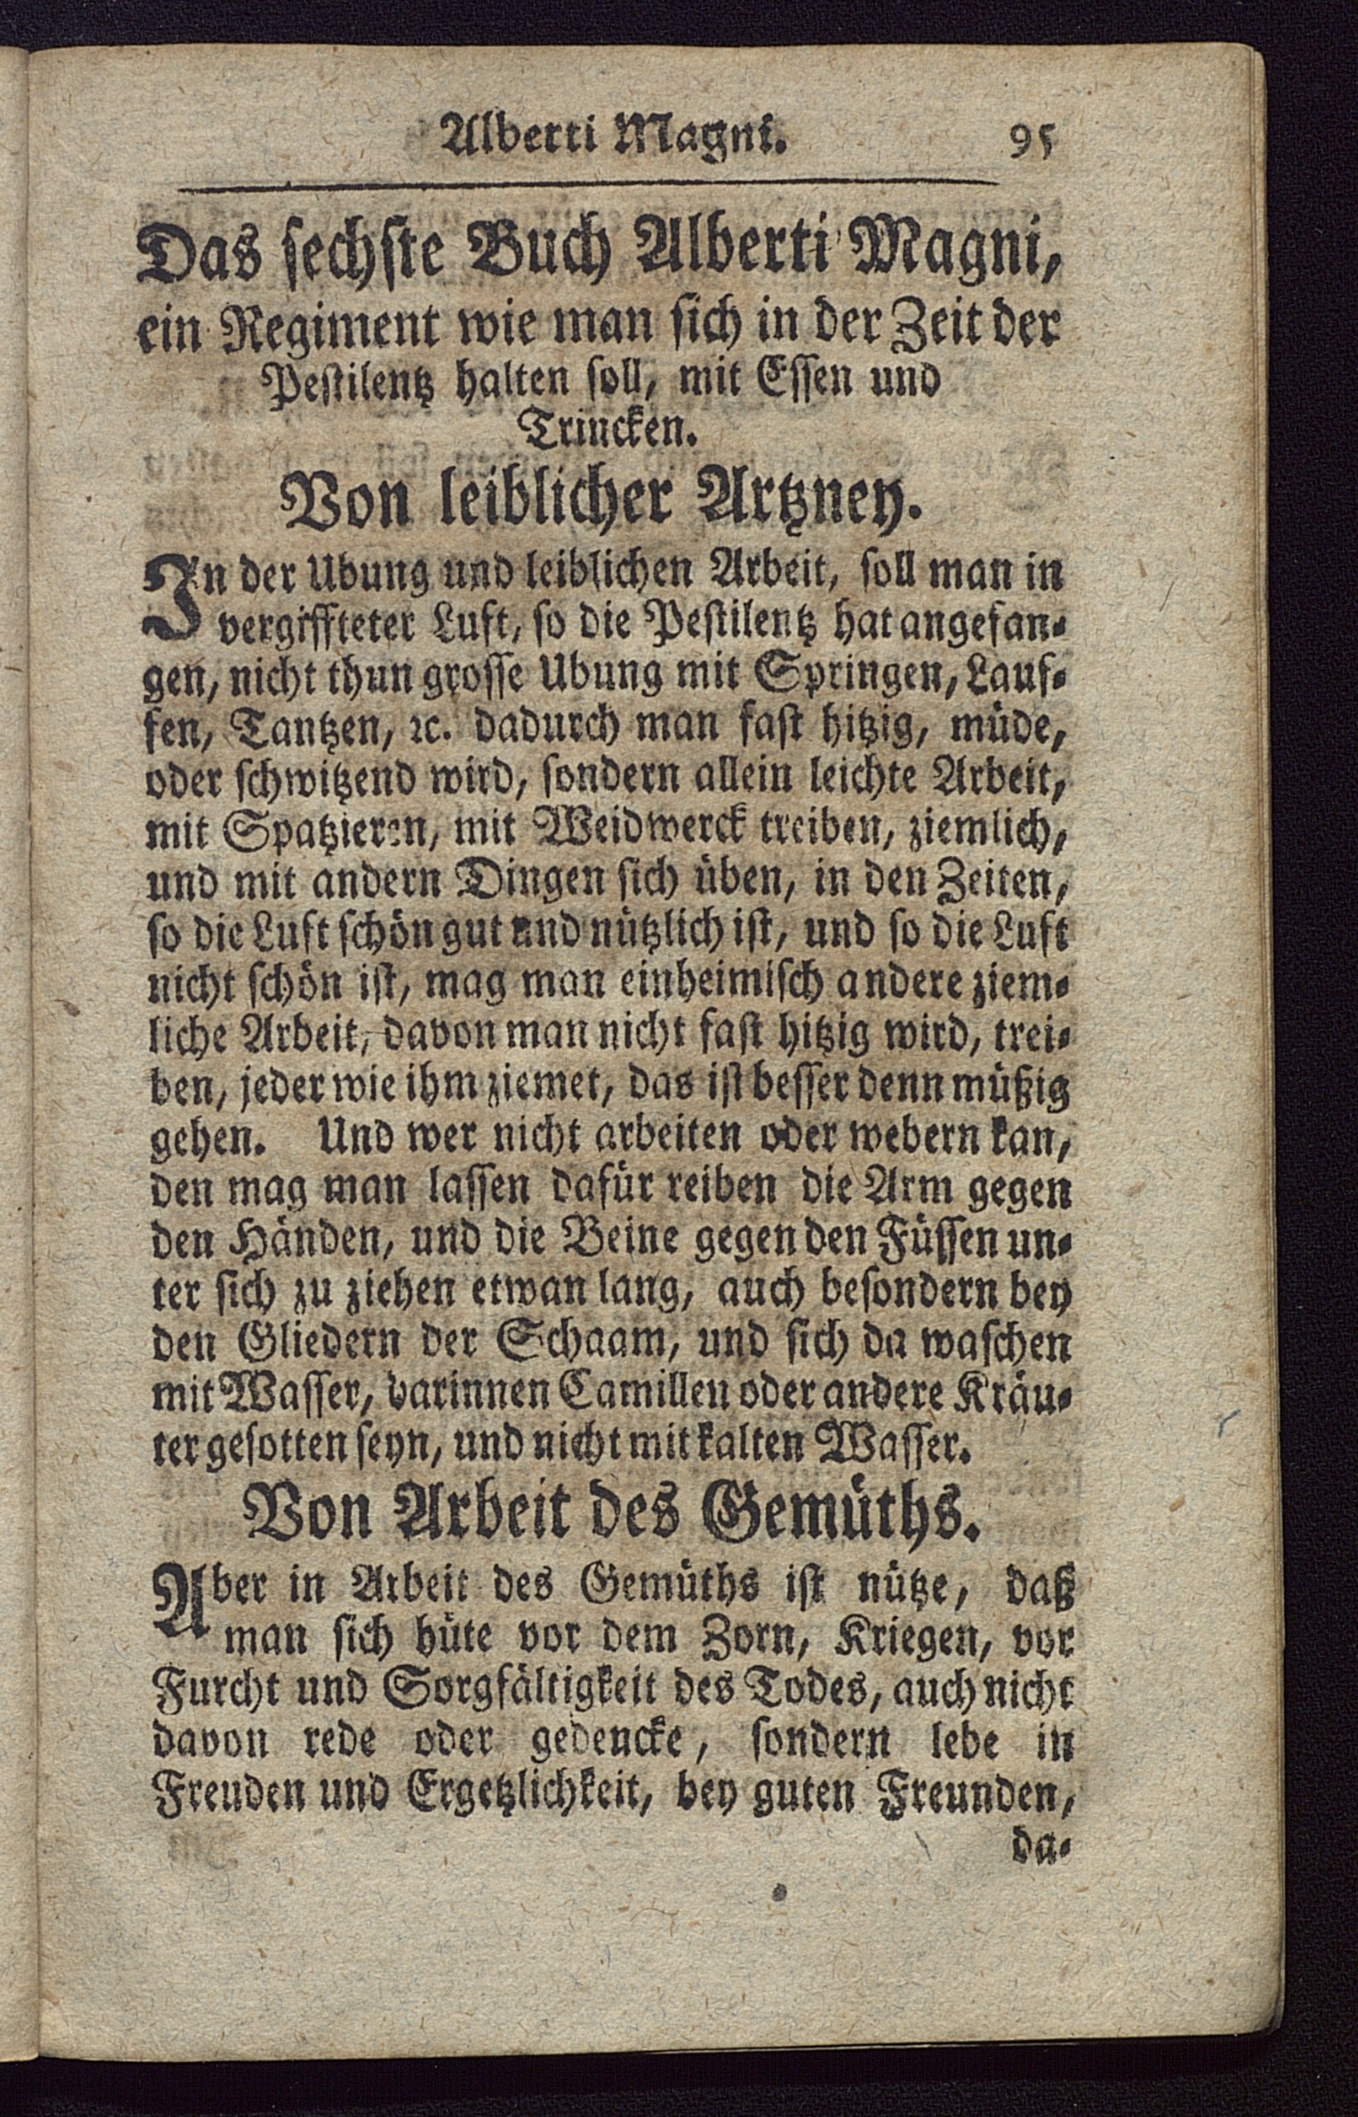 Alberti Magni. 95
Das sechste Buch Alberti Magni,
ein Regiment wie man sich in der Zeit der
Pestilentz halten soll, mit Essen und
Trincken.
Von leiblicher Artzney.
In der Ubung und leiblichen Arbeit, soll man in
vergiffteter Luft, so die Pestilentz hat angefan-
gen, nicht thun grosse Ubung mit Springen, Lauf-
fen, Tantzen, ꝛc. dadurch man fast hitzig, müde,
oder schwitzend wird, sondern allein leichte Arbeit,
mit Spatzieren, mit Weidwerck treiben, ziemlich,
und mit andern Dingen sich üben, in den Zeiten,
so die Luft schön gut und nützlich ist, und so die Luft
nicht schön ist, mag man einheimisch andere ziem-
liche Arbeit, davon man nicht fast hitzig wird, trei-
ben, jeder wie ihm ziemet, das ist besser denn müßig
gehen. Und wer nicht arbeiten oder webern kan,
den mag man lassen dafür reiben die Arm gegen
den Händen, und die Beine gegen den Füssen un-
ter sich zu ziehen etwan lang, auch besondern bey
den Gliedern der Schaam, und sich da waschen
mit Wasser, darinnen Camillen oder andere Kräu-
ter gesotten seyn, und nicht mit kalten Wasser.
Von Arbeit des Gemüths.
Aber in Arbeit des Gemüths ist nütze, daß
man sich hüte vor dem Zorn, Kriegen, vor
Furcht und Sorgfältigkeit des Todes, auch nicht
davon rede oder gedencke, sondern lebe in
Freuden und Ergetzlichkeit, bey guten Freunden,
da-